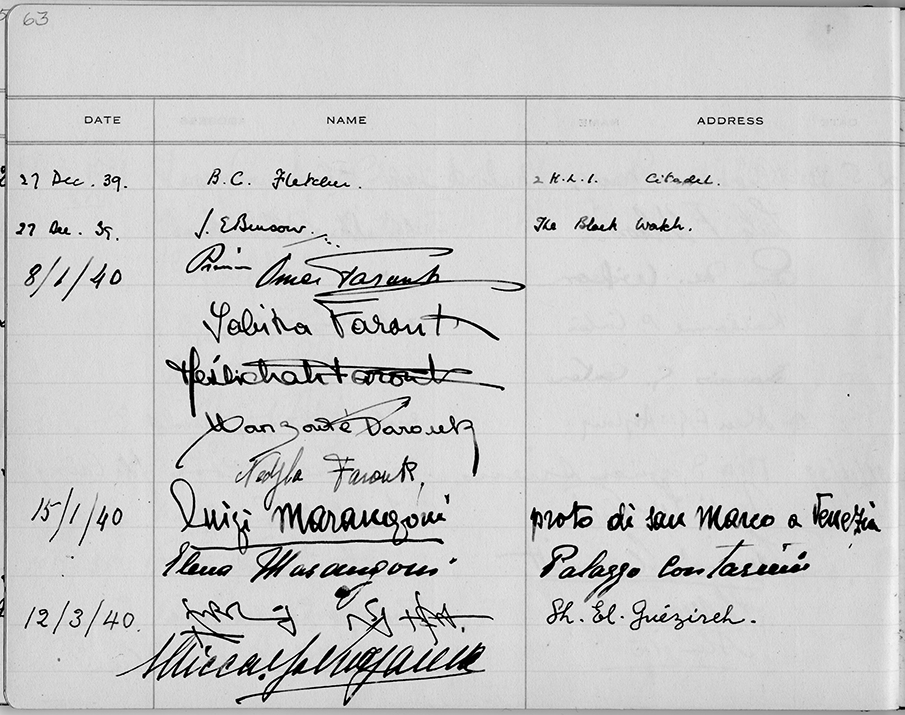 63
DATE NAME ADDRESS
27 Dec. 39. B.C. Fletcher. 2 H.L.I. Citadel.
27 Dec. 39. J. E. Benson. The Black Watch.
8/1/40 Omer Farouk
Sabiha Farouk
Farouk
Farouk
Nedjla Farouk.
15/1/40 Luigi Marangoni proto di San Marco a Venezia
Elena Marangoni Palazzo Contarini
12/3/40. Sh. El. Guézireh.